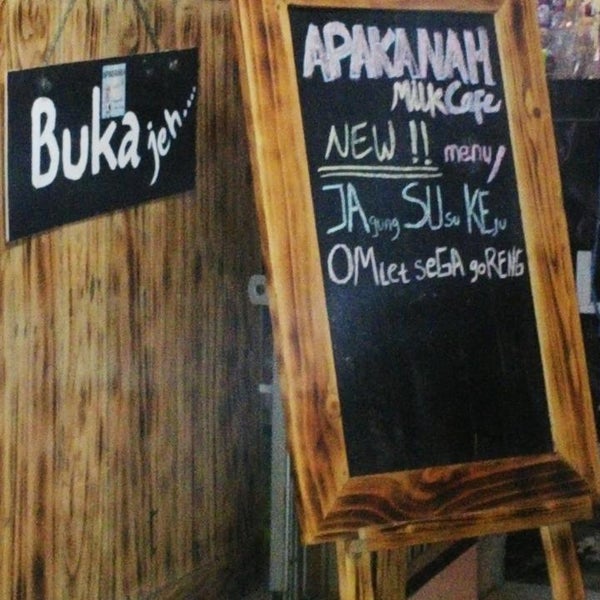 Buka jeh....
APAKANAH
Milk Cafe
NEW !! menu
JAgung SUsu KEju
OMLet SeGA goRENG